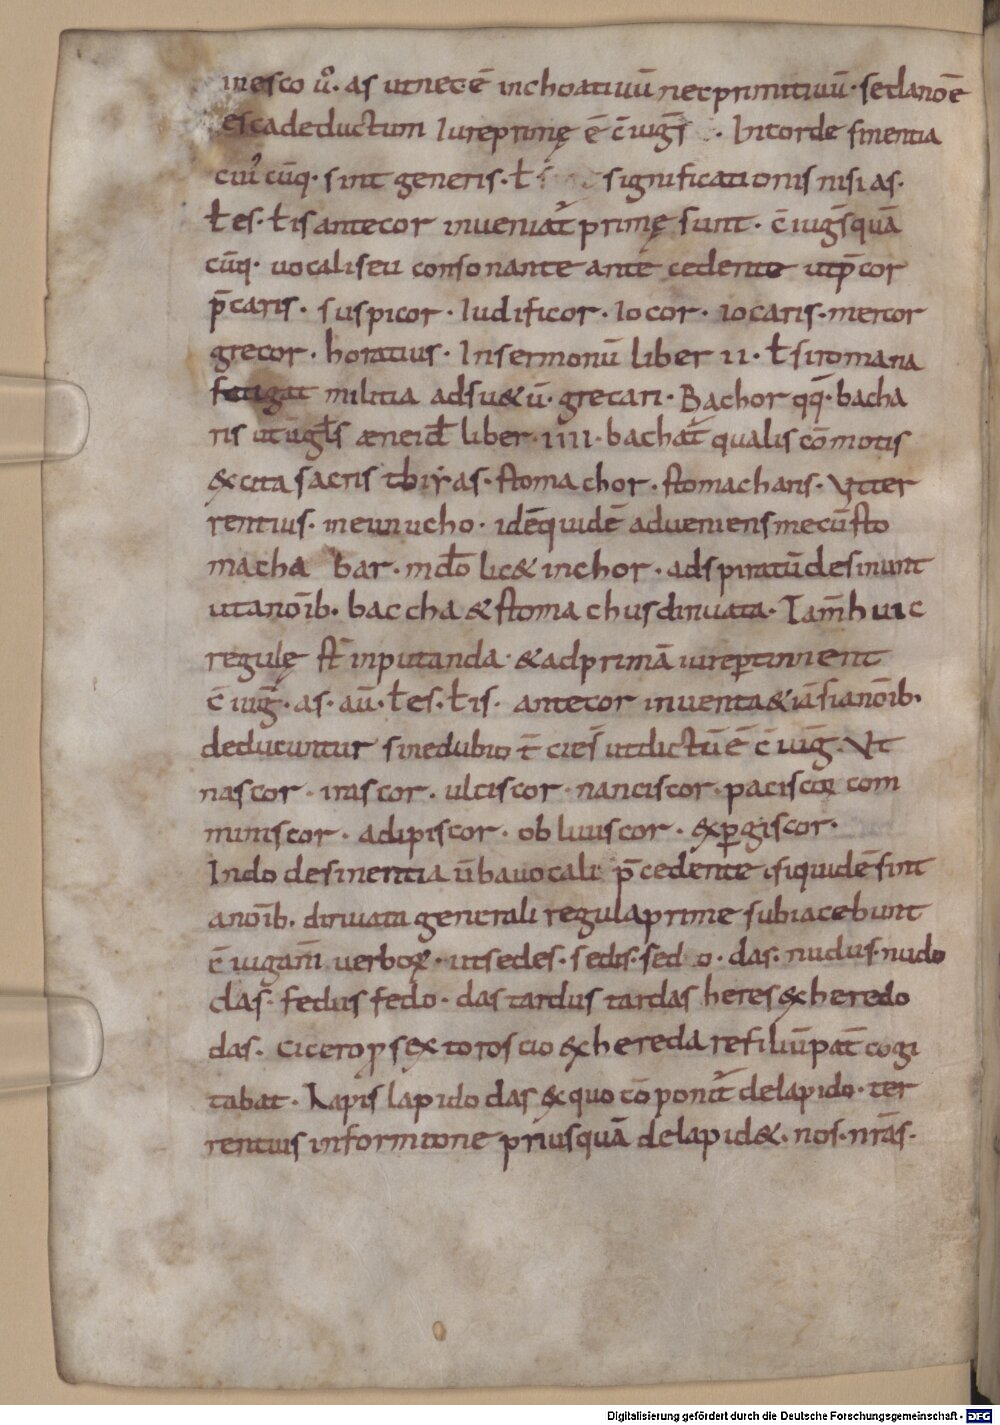 inesco uͦ. as ut nec ē inchoatiuū nec primitiuū. sed a noīe
esca deductum Iure primę ē c̄iugs̄. In cor desinentia
cuiꝰcūq. sint generis. ł significationis nisi as.
ł es. ł is ante cor inueniat̄ primę sunt. c̄iugs̄ quā
cūq. uocali seu consonante antecedente ut p̄cor
p̄caris. suspicor. ludificor. Iocor. iocaris. mercor
grecor. horatius. In sermonū liber ii. ł si romana
fatigat militia adsu&ū. grecari. Bachor qq̄. bacha
ris ut ūgłs æneid̄ liber. iiii. bachat̄ qualis cōmotis
&cita sacris thiyas. stomachor. stomacharis. Vt ter
rentius. in eunucho. idē quidē adueniens mecū sto
macha bar. md̄o lic& in chor. adspiratū desinunt
ut a noīb. baccha & stomachus diriuata. Tam̄ huic
regulę st̄ inputanda. & ad primā iure ꝑtinient
c̄iuḡ. as. aū. ł es. ł is. ante cor inuenta & iā si a noīb.
deducuntur sine dubio t̄ciēs ut dictū ē c̄iuḡ. Vt
nascor. irascor. ulciscor. nanciscor. paciscor com
miniscor. adipiscor. obliuiscor. &ꝑgiscor.
In do desinentia ūba uocali p̄cedente. siquidē sint
a noīb. diriuata generali regula prime subiacebunt
c̄iugam̄ uerboꝝ. ut sedes. sedis. sedo. das. nudus. nudo
das. fedus fedo. das tardus tardas heres &heredo
das. cicero ꝓ sex to roscio &heredare filiū pat̄ cogi
tabat. Lapis lapido das & quo cōponit̄ delapido. ter
rentius in formione priusquā delapid&. nos. nr̄as.
Digitalisierung gefördert durch die Deutsche Forschungsgemeinschaft - DFG